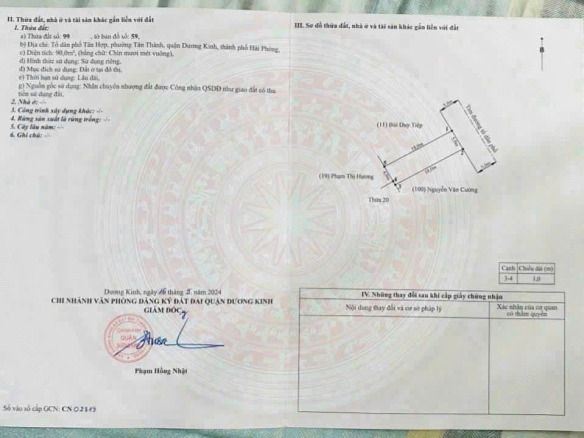 II. Thửa đất, nhà ở và tài sản khác gắn liền với đất
1. Thửa đất:
a) Thửa đất số: 99 , tờ bản đồ số: 59,
b) Địa chỉ: Tổ dân phố Tân Hợp, phường Tân Thành, quận Dương Kinh, thành phố Hải Phòng,
c) Diện tích: 90,0m², (bằng chữ: Chín mươi mét vuông),
d) Hình thức sử dụng: Sử dụng riêng,
đ) Mục đích sử dụng: Đất ở tại đô thị,
e) Thời hạn sử dụng: Lâu dài,
g) Nguồn gốc sử dụng: Nhận chuyển nhượng đất được Công nhận QSDĐ như giao đất có thu
tiền sử dụng đất.
2. Nhà ở: -/-
3. Công trình xây dựng khác: -/-
4. Rừng sản xuất là rừng trồng: -/-
5. Cây lâu năm: -/-
6. Ghi chú: -/-
Dương Kinh, ngày 16 tháng 5. năm 2024
CHI NHÁNH VĂN PHÒNG ĐĂNG KÝ ĐẤT ĐAI QUẬN DƯƠNG KINH
GIÁM ĐỐC
Phạm Hồng Nhật
Số vào sổ cấp GCN: CN
III. Sơ đồ thửa đất, nhà ở và tài sản khác gắn liền với đất
B
Tim đường tổ dân phố
(11) Bùi Duy Tiếp
18,0m
18,0m
(19) Phạm Thị Hương
(100) Nguyễn Văn Cường
Thửa 20
Cạnh Chiều dài (m)
3-4
IV. Những thay đổi sau khi cấp giấy chứng nhận
Nội dung thay đổi và cơ sở pháp lý
Xác nhận của cơ quan
có thẩm quyền